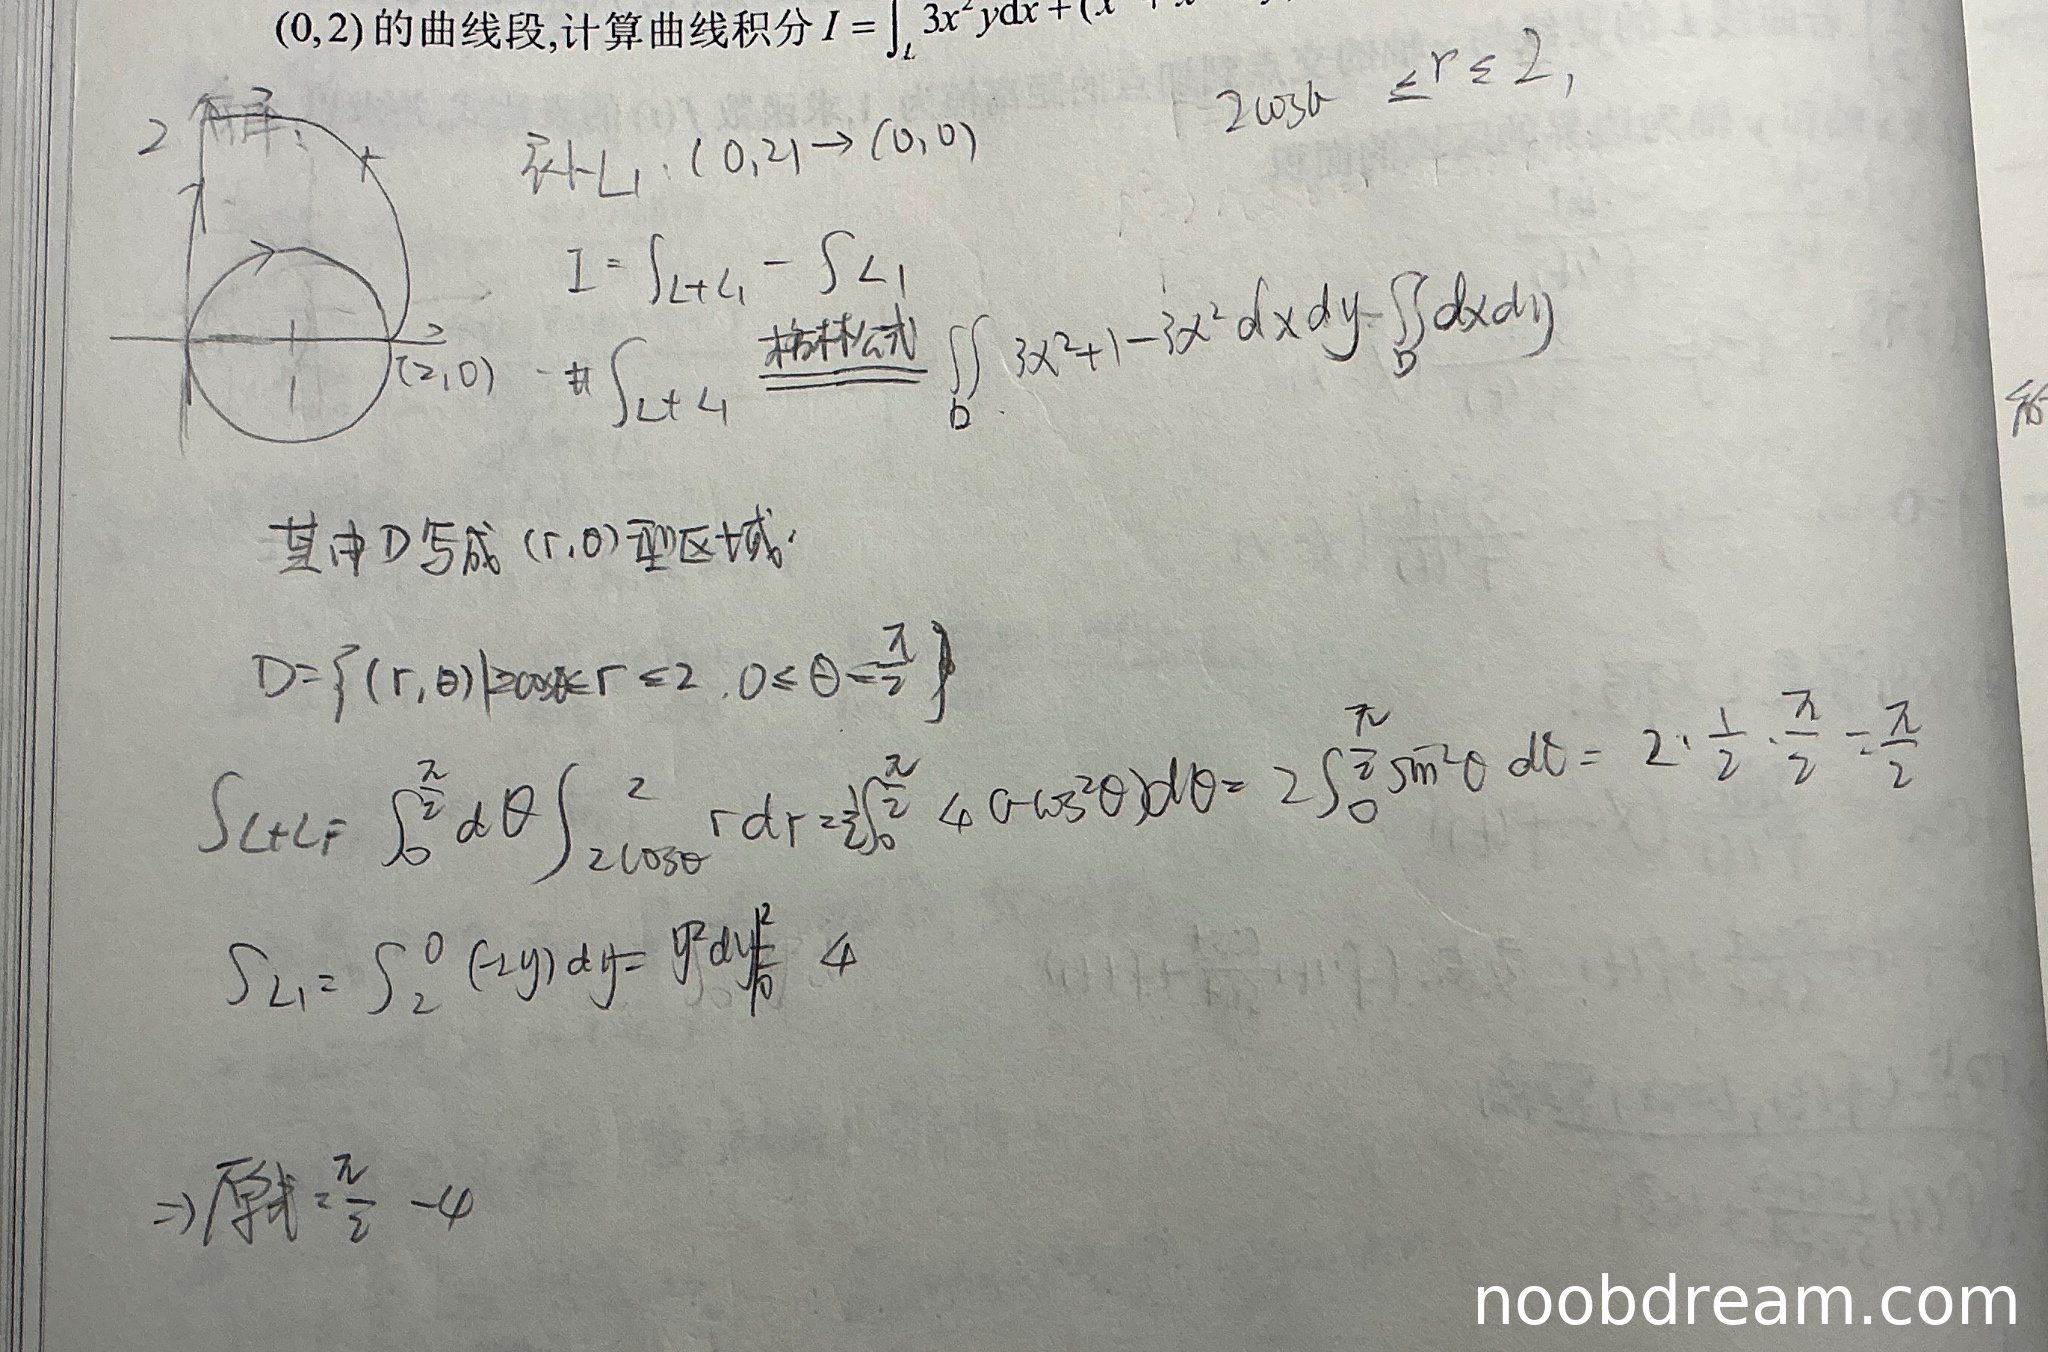 (0,2) 的曲线段,计算曲线积分 I = ∫_L 3x²ydx + (x
2cosθ ≤ r ≤ 2,
2
解:
补L₁: (0,2) → (0,0)
I = ∫_{L+L₁} - ∫_{L₁}
(2,0)
1
∫_{L+L₁} 格林公式 ∬_D 3x²+1-3x² dxdy = ∬_D dxdy
其中D写成 (r,θ)型区域.
D={(r,θ)|2cosθ≤r≤2, 0≤θ≤π/2}
∫_{L+L₁}= ∫_0^{π/2} dθ ∫_{2cosθ}^2 rdr = 1/2 ∫_0^{π/2} 4(1-cos²θ)dθ = 2∫_0^{π/2} sin²θ dθ = 2·1/2·π/2 = π/2
∫_{L₁} = ∫_2^0 (-2y)dy = y²dy|_0^2 = 4
⇒原式 = π/2 - 4
noobdream.com